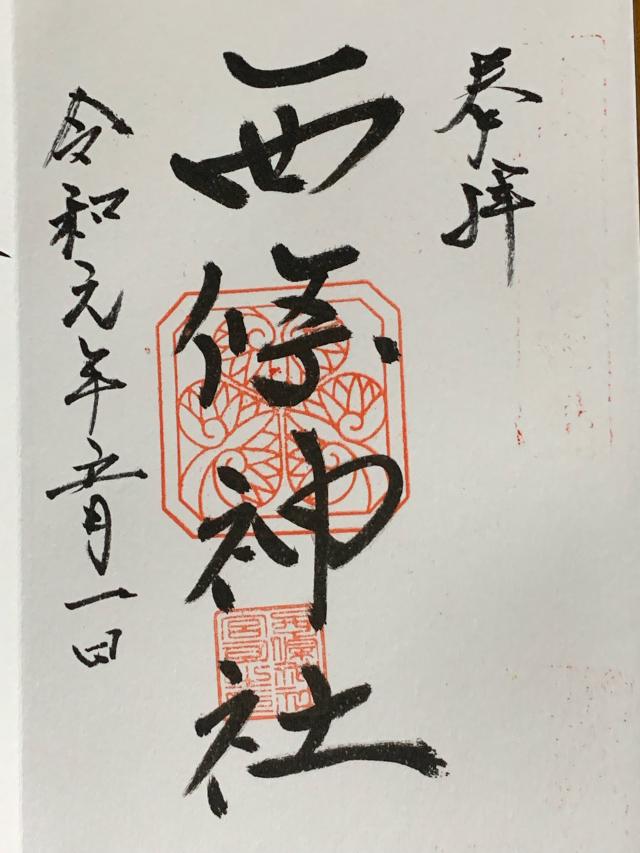 奉拝
西條神社
令和元年五月一日